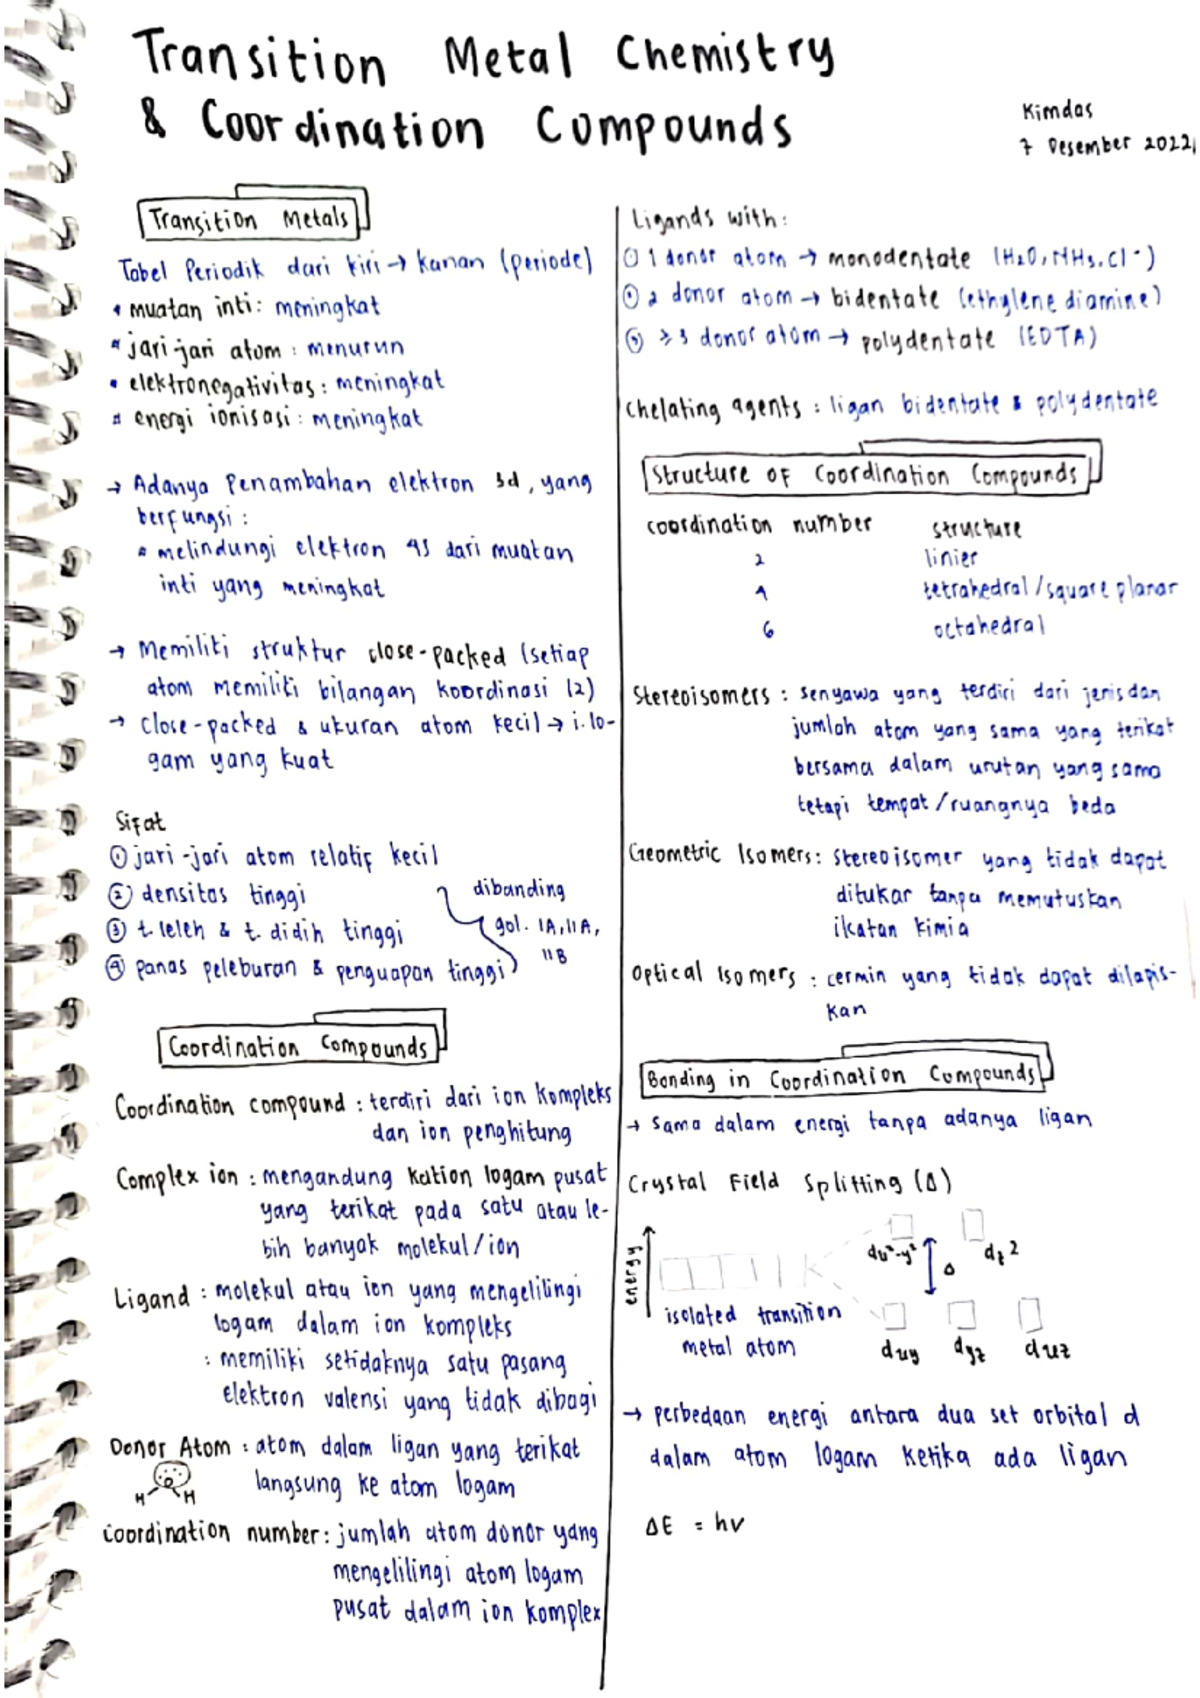 Transition Metal Chemistry
& Coordination Compounds
Kimdas
7 Desember 2022
Transition Metals
Tabel Periodik dari kiri → kanan (periode)
• muatan inti: meningkat
• jari-jari atom: menurun
• elektronegativitas: meningkat
• energi ionisasi: meningkat
→ Adanya Penambahan elektron 3d, yang
berfungsi:
• melindungi elektron 4s dari muatan
inti yang meningkat
→ Memiliki struktur close-packed (setiap
atom memiliki bilangan koordinasi 12)
→ Close-packed & ukuran atom kecil → i. lo-
gam yang kuat
Sifat
① jari-jari atom relatif kecil
② densitas tinggi
③ t. leleh & t. didih tinggi
④ panas peleburan & penguapan tinggi
dibanding
gol. IA, IIA,
IIB
Coordination Compounds
Coordination compound : terdiri dari ion kompleks
dan ion penghitung
Complex ion : mengandung kation logam pusat
yang terikat pada satu atau le-
bih banyak molekul/ion
Ligand : molekul atau ion yang mengelilingi
logam dalam ion kompleks
: memiliki setidaknya satu pasang
elektron valensi yang tidak dibagi
Donor Atom : atom dalam ligan yang terikat
langsung ke atom logam
O
H H
Coordination number: jumlah atom donor yang
mengelilingi atom logam
pusat dalam ion komplex
Ligands with:
① 1 donor atom → monodentate (H2O, NH3, Cl-)
② 2 donor atom → bidentate (ethylene diamine)
③ ≥ 3 donor atom → polydentate (EDTA)
Chelating agents : ligan bidentate & polydentate
Structure of Coordination Compounds
coordination number structure
2 linier
4 tetrahedral/square planar
6 octahedral
Stereoisomers : senyawa yang terdiri dari jenis dan
jumlah atom yang sama yang terikat
bersama dalam urutan yang sama
tetapi tempat/ruangnya beda
Geometric Isomers: stereoisomer yang tidak dapat
ditukar tanpa memutuskan
ikatan kimia
Optical Isomers : cermin yang tidak dapat dilapis-
kan
Bonding in Coordination Compounds
→ Sama dalam energi tanpa adanya ligan
Crystal Field Splitting (Δ)
energy
isolated transition
metal atom
dx²-y² Δ dz2
dxy dyz dxz
→ perbedaan energi antara dua set orbital d
dalam atom logam ketika ada ligan
ΔE = hv